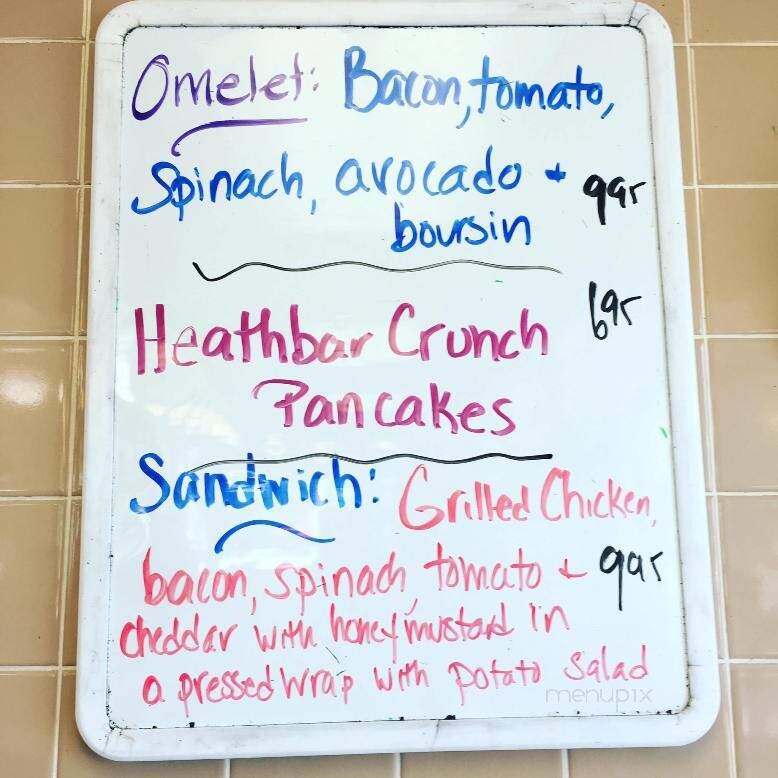 Omelet: Bacon, tomato,
Spinach, avocado + 995
boursin
Heathbar Crunch 695
Pancakes
Sandwich: Grilled Chicken,
bacon, spinach, tomato + 995
cheddar with honey mustard in
a pressed wrap with potato salad
menupix